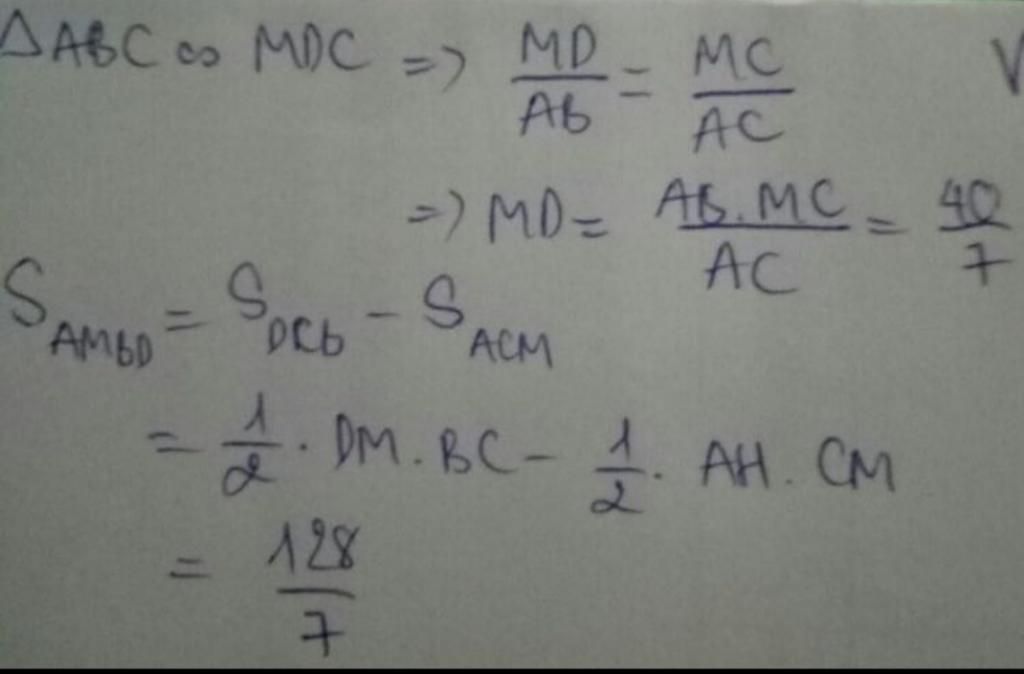 ΔABC ∽ MDC => MD/AB = MC/AC V
=> MD = AB.MC/AC = 40/7
S_AMbD = S_DCb - S_ACM
= 1/2 . DM.BC - 1/2 . AH.CM
= 128/7